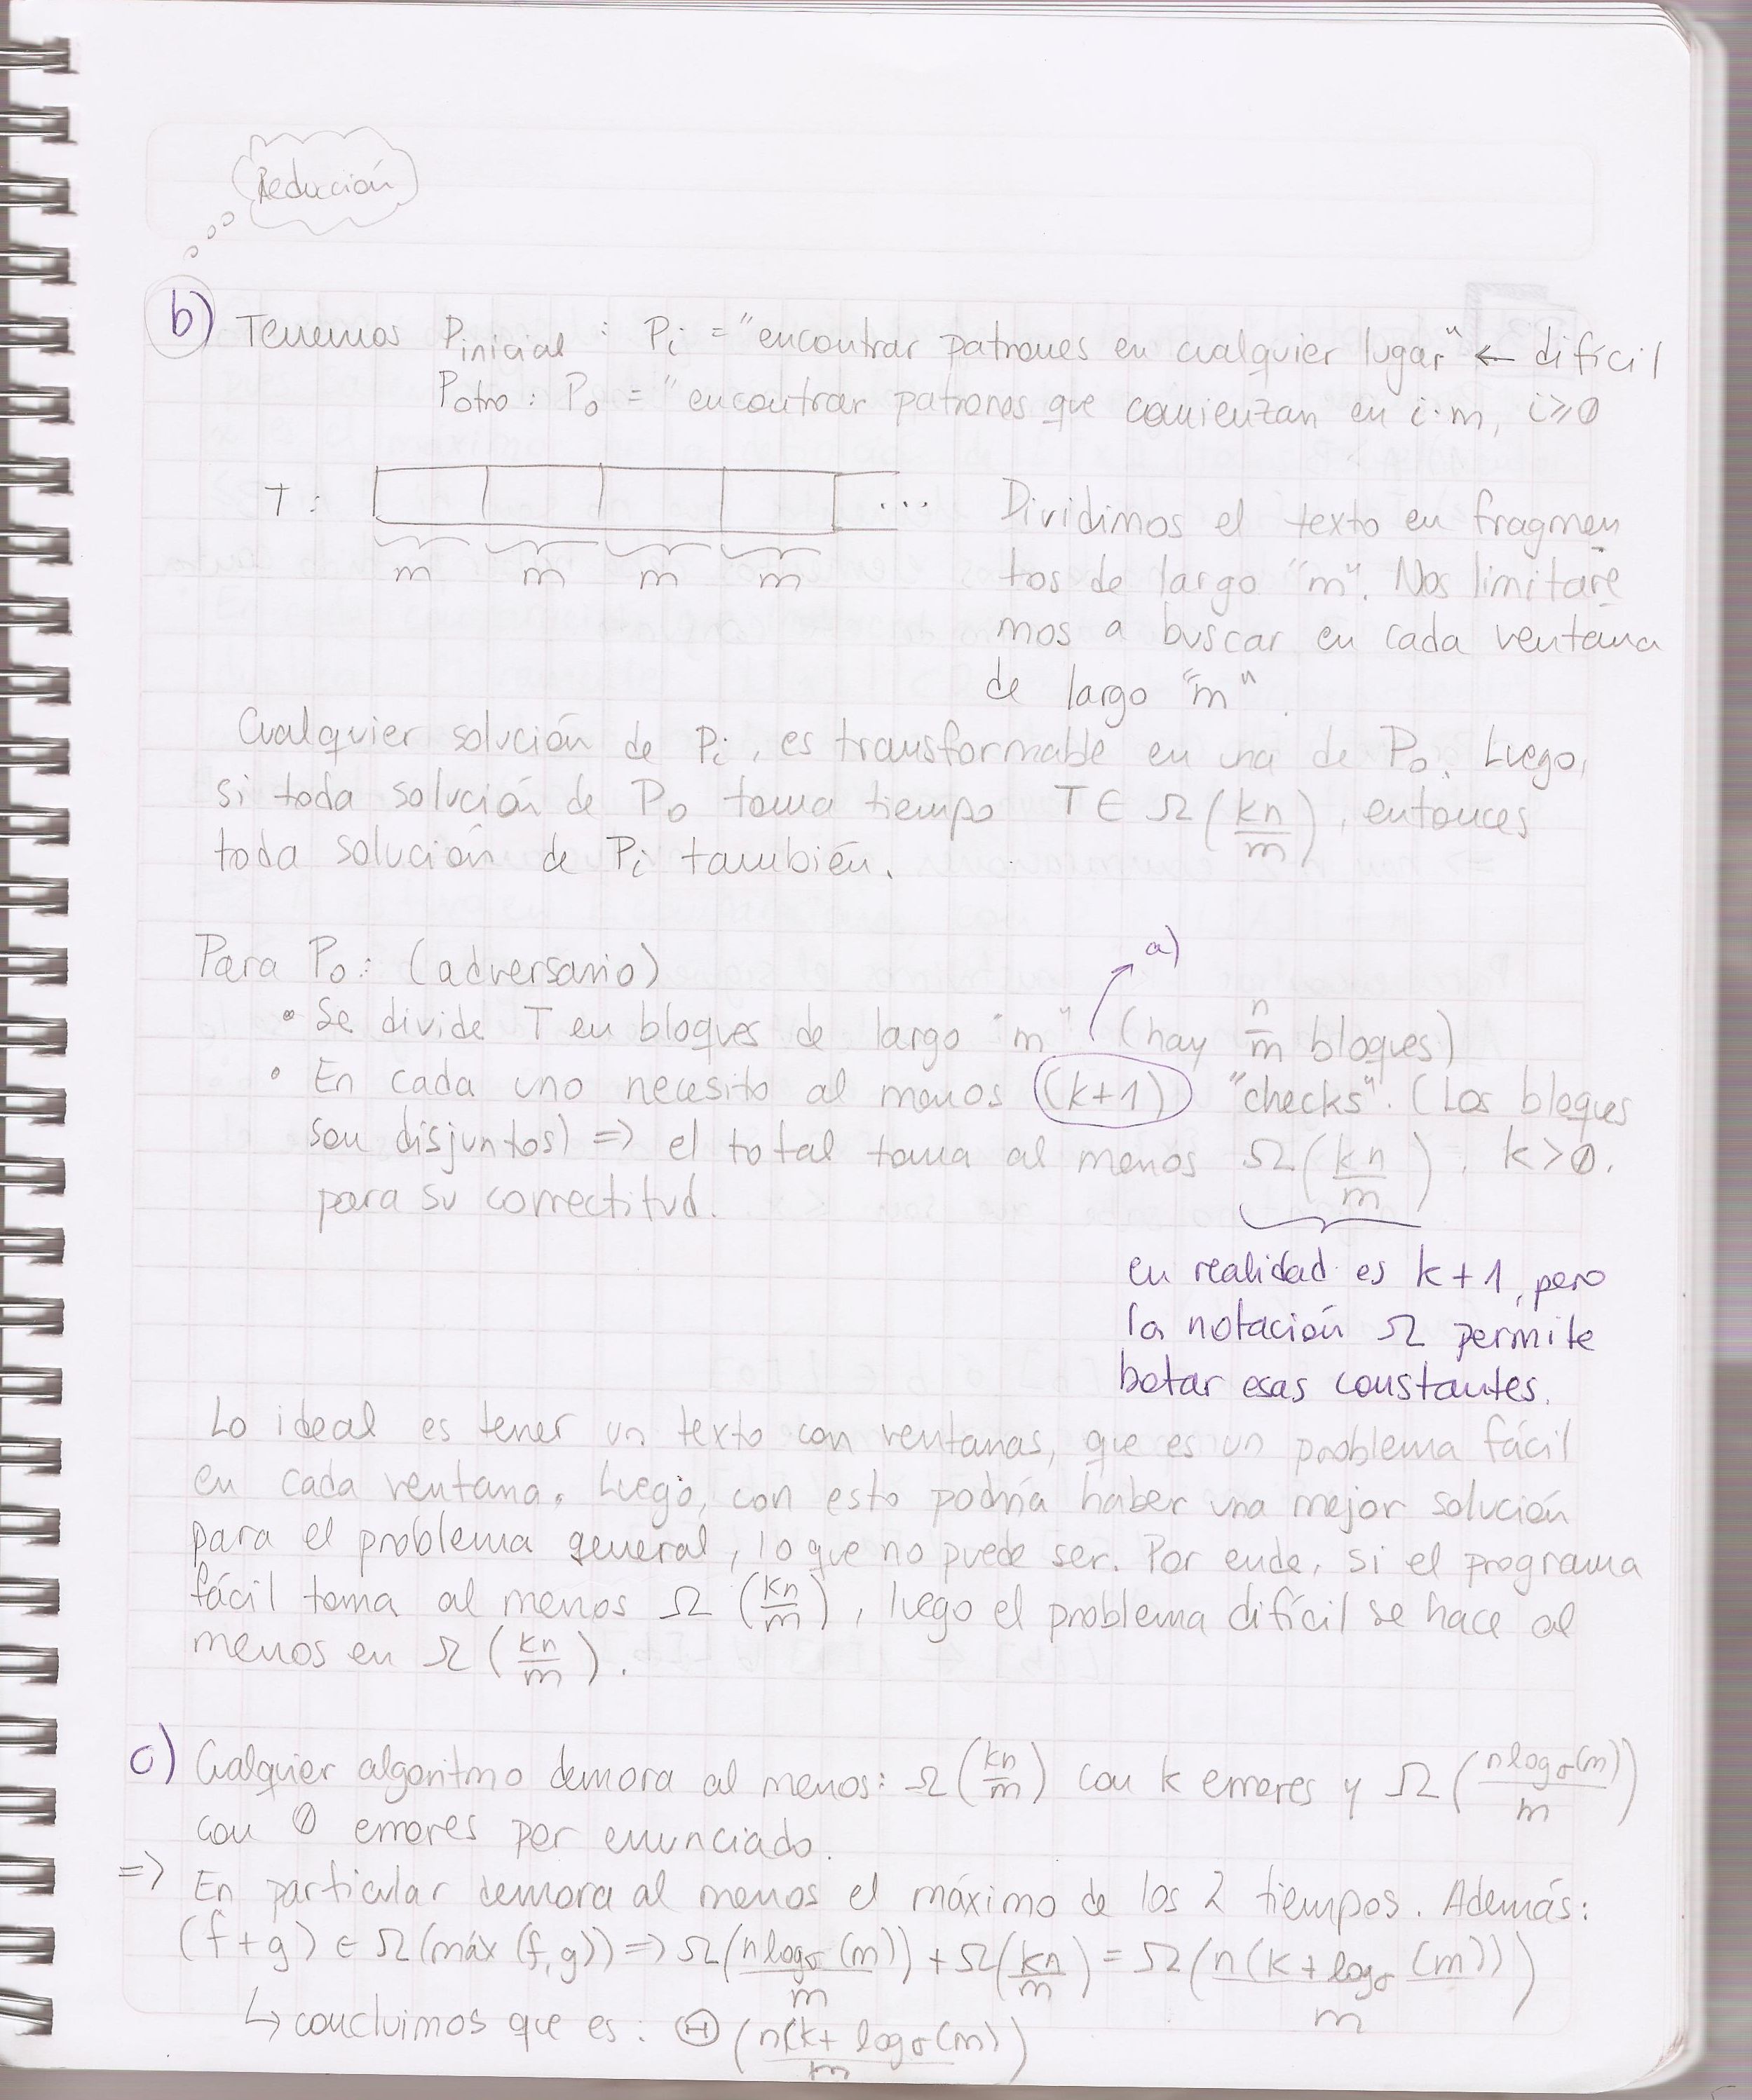 Reducción
b) Tenemos Pinicial : Pi = "encontrar patrones en cualquier lugar" ← difícil
Potro : Po = "encontrar patrones que comienzan en i·m, i≥0
T : ... Dividimos el texto en fragmen
m m m m tos de largo "m". Nos limitare
mos a buscar en cada ventana
de largo "m".
Cualquier solución de Pi, es transformable en una de Po. Luego,
si toda solución de Po toma tiempo T ∈ Ω(kn/m), entonces
toda solución de Pi también.
a)
Para Po: (adversario)
• Se divide T en bloques de largo "m" (hay n/m bloques)
• En cada uno necesito al menos (k+1) "checks". (Los bloques
son disjuntos) => el total toma al menos Ω(kn/m), k>0,
para su correctitud.
en realidad es k+1, pero
la notación Ω permite
botar esas constantes.
Lo ideal es tener un texto con ventanas, que es un problema fácil
en cada ventana. Luego, con esto podría haber una mejor solución
para el problema general, lo que no puede ser. Por ende, si el programa
fácil toma al menos Ω(kn/m), luego el problema difícil se hace al
menos en Ω(kn/m).
c) Cualquier algoritmo demora al menos: Ω(kn/m) con k errores y Ω(nlogσ(m)/m)
con 0 errores por enunciado.
=> En particular demora al menos el máximo de los 2 tiempos. Además:
(f+g) ∈ Ω(máx(f,g)) => Ω(nlogσ(m)/m) + Ω(kn/m) = Ω(n(k+logσ(m))/m)
↳ concluimos que es: Θ(n(k+logσ(m))/m)